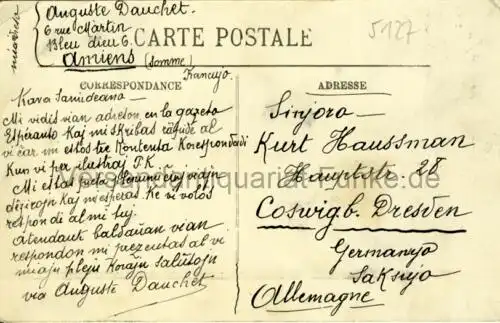 Auguste Dauchet.
6 rue Martin
Bleu dieu 6.
Amiens (Somme)
Francujo
5127
CARTE POSTALE
CORRESPONDANCE
Kara Samideano —
Mi vidis vian adreson en la gazeto
Esperanto kaj mi skribas rapide al
vi ĉar mi estos tie kontenta korespondadi
kun vi per ilustraj P.K
Mi estas preta plenumi ĉiuj viajn
dezirojn kaj mi esperas ke vi volos
respondi al mi tuj.
Atendant baldaŭan vian
respondon mi prezentas al vi
miajn plej korajn salutojn
via Auguste Dauchet
ADRESSE
Sinjoro
Kurt Haussman
Hauptstr. 28
Coswig b. Dresden
Germanujo
Saksujo
Allemagne
Versandantiquariat-Funke.de